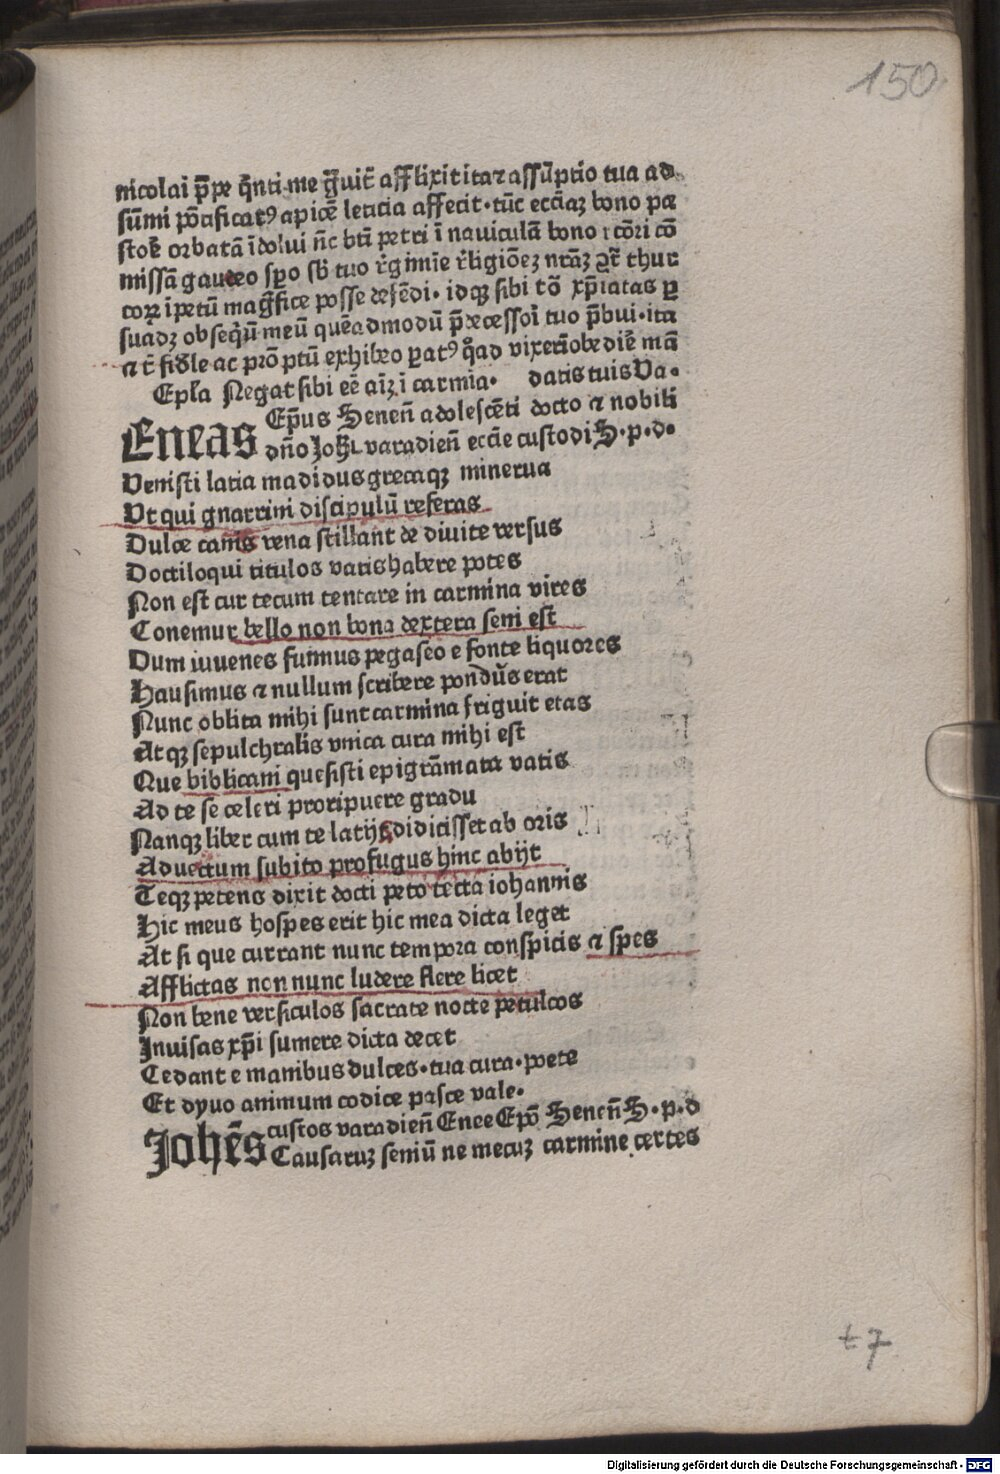 150
nicolai p̄pe q̄nti me g̃uit̃ afflixit ita ⁊ assũptio tua ad
sũmi põtificatꝰ apicẽ leticia affecit · tũc eccĩaꝫ bono pa
storẽ orbatã ĩdolui ñc btĩ petri ĩ nauiculã bono ⁊ cõri cõ
missã gaudeo sp̱o sb̃ tuo r̃gimĩe r̃ligiõeꝫ nr̃aꝫ ꝯt̃ thur
coꝝ ĩpetũ mag̃fice posse defẽdi · idqꝫ sibi tõ xp̃iatas ꝑ
suadꝫ obseq̃ũ meũ quẽadmodũ p̄decessori tuo p̄bui · ita
⁊ t̃ fidẽle ac prõptũ exhibeo ꝑatꝰ q̊ad vixerĩ obediẽ mã
Ep̃la Negat sibi eẽ aĩꝫ ĩ carmĩa · datis tuis Va ·
ENEAS Ep̃us Seneñ adolescẽti docto ⁊ nobili
dño Joh̃ varadieñ eccĩe custodi S · p · d ·
Venisti latia madidus grecaqꝫ minerua
Ut qui gnarrini discipulũ referas
Dulce canis vena stillant de diuite versus
Doctiloqui titulos vatis habere potes
Non est cur tecum tentare in carmina vires
Conemur bello non bona dextera seni est
Dum iuuenes fuimus pegaseo e fonte liquores
Hausimus ⁊ nullum scribere pondũs erat
Nunc oblita mihi sunt carmina friguit etas
Atqꝫ sepulchralis vnica cura mihi est
Que biblicani quesisti epigrãmata vatis
Ad te se celeri proripuere gradu
Nanqꝫ liber cum te latijs didicisset ab oris
Aduectum subito profugus hinc abijt
Teqꝫ petens dixit docti peto tecta iohannis
Hic meus hospes erit hic mea dicta leget
At si que currant nunc tempora conspicis ⁊ spes
Afflictas non nunc ludere flere licet
Non bene versiculos sacrate nocte petulcos
Inuisas xp̃i sumere dicta decet
Cedant e manibus dulces · tua cura · poete
Et dyuo animum codice pasce vale ·
Johẽs custos varadieñ Enee Ep̃o Seneñ S · p · d
Causaruꝫ seniũ ne mecuꝫ carmine certes
t 7
Digitalisierung gefördert durch die Deutsche Forschungsgemeinschaft - DFG